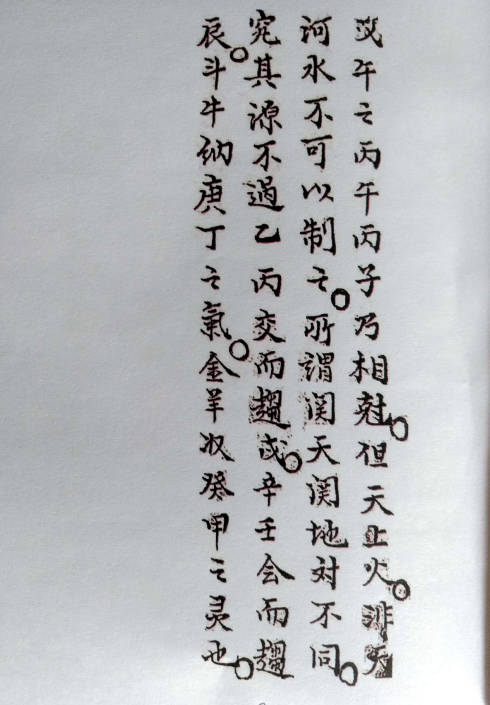 戊午之丙午丙子乃相尅。但天上火。非天
河水不可以制之。所謂関天関地对不同。
究其源不過乙丙交而趨戌。辛壬会而趨
辰。斗牛纳庚丁之氣。金羊收癸甲之灵也。